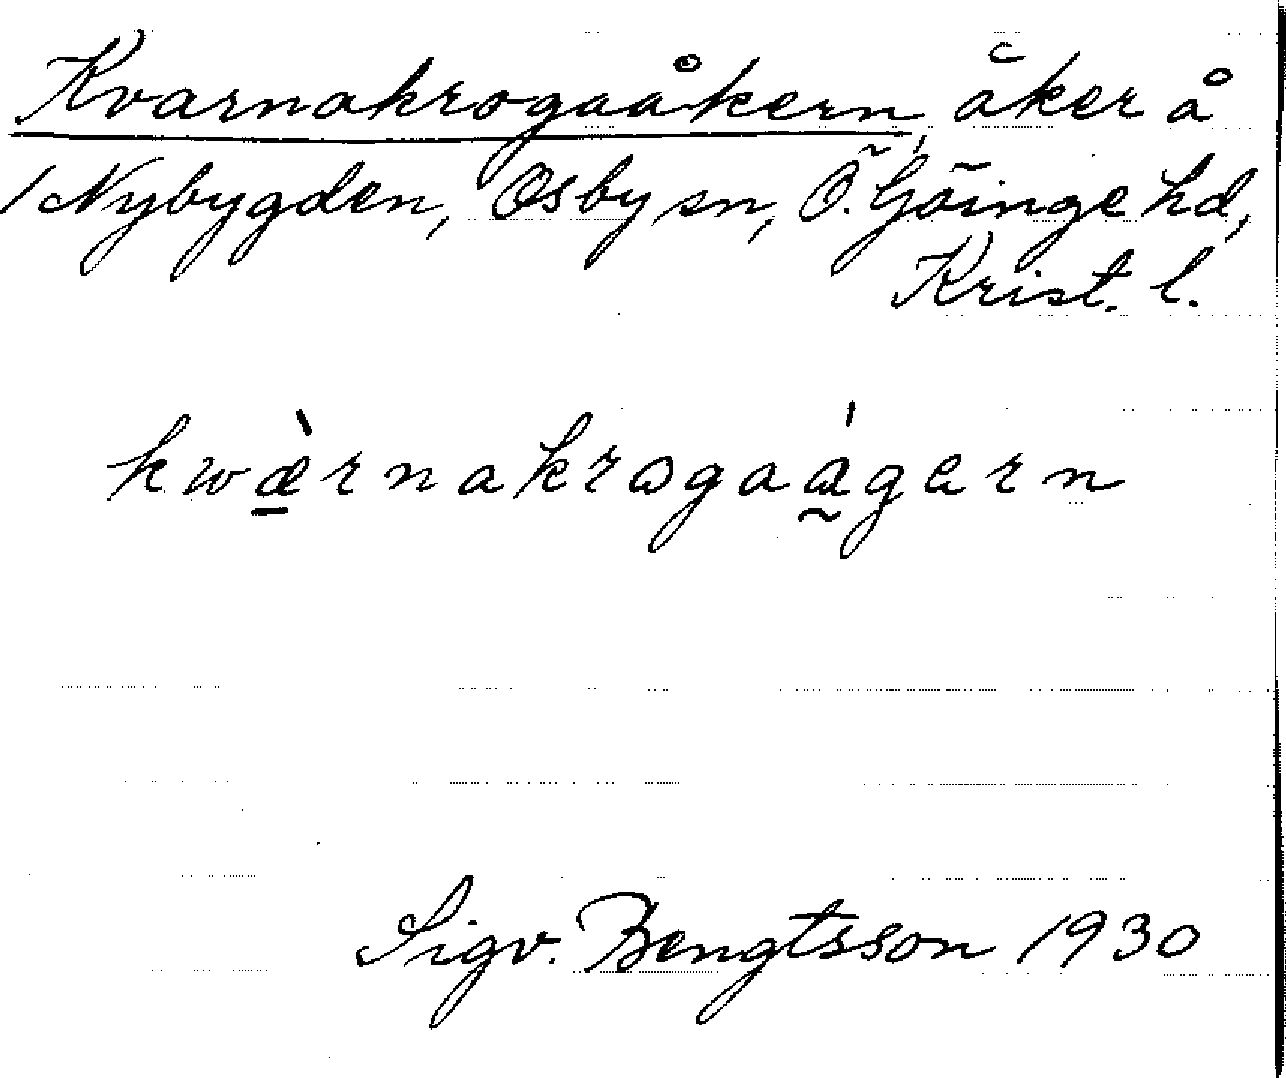 Kvarnakrogaåkern, åker å
/Nybygden, Osby sn, Ö. Göinge hd,
Krist. l.
kwæ̱̀rnakrogaá̰gern
Sigv. Bengtsson 1930